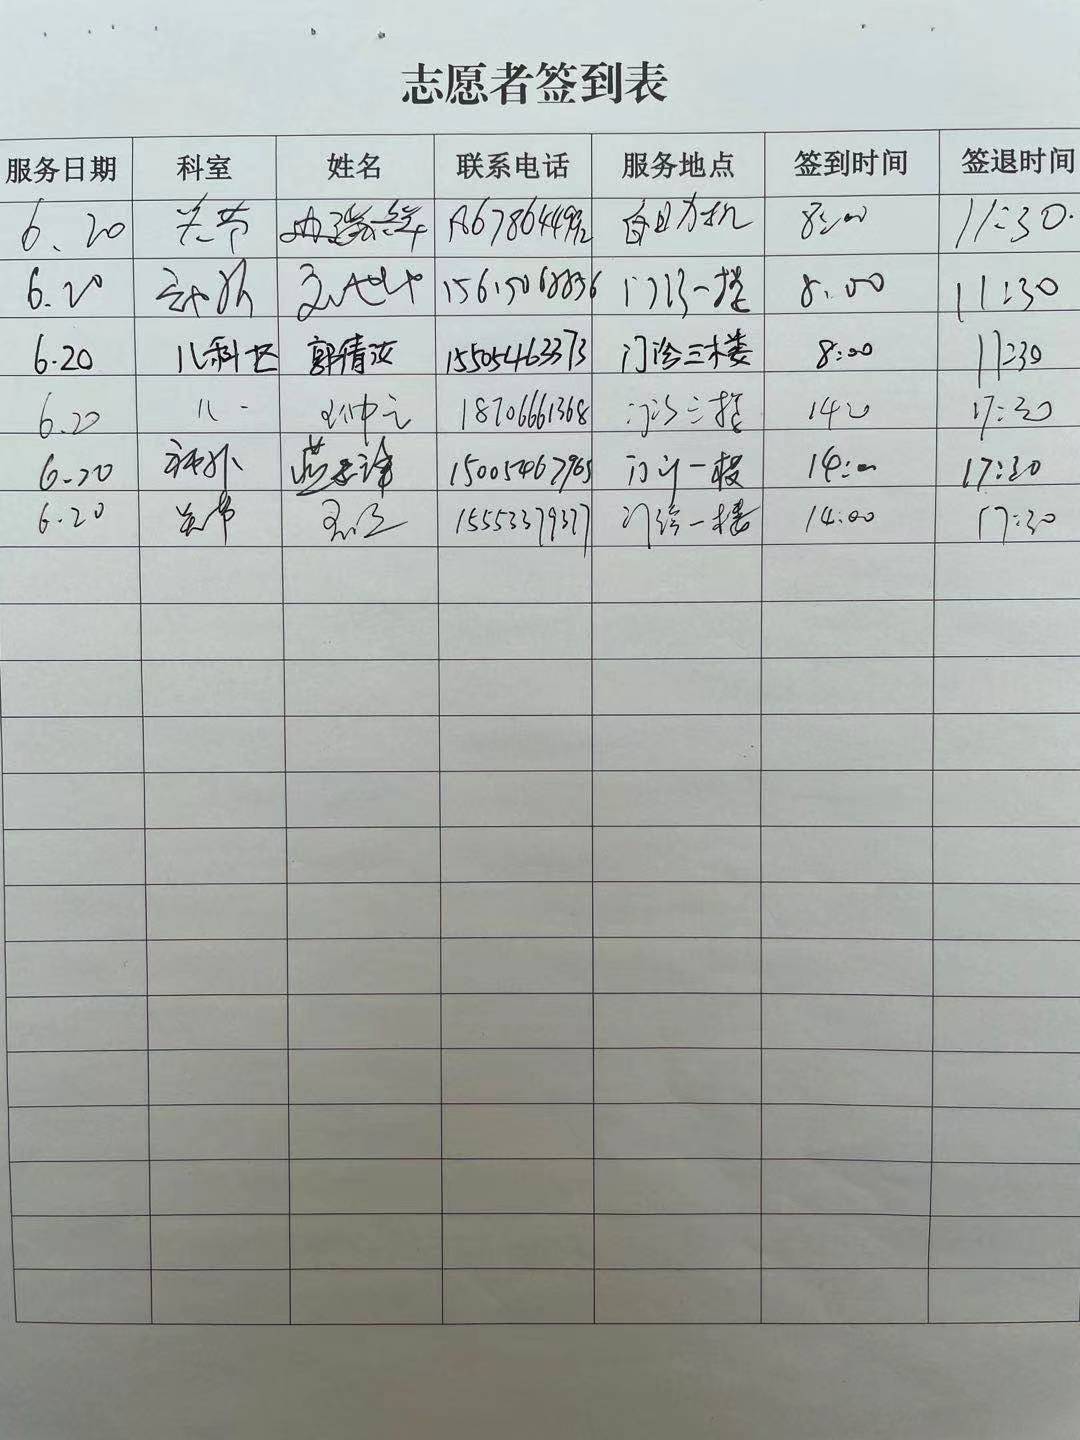 志愿者签到表
服务日期 科室 姓名 联系电话 服务地点 签到时间 签退时间
6.20 关节 自助机 8:00 11:30.
6.20 门诊一楼 8:00 11:30
6.20 儿科七 郭倩汝 15505463373 门诊三楼 8:00 11:30
6.20 儿一 18706661368 门诊三楼 17:30
6.20 神外 门诊一楼 14:00 17:30
6.20 关节 15553379377 门诊一楼 14:00 17:30